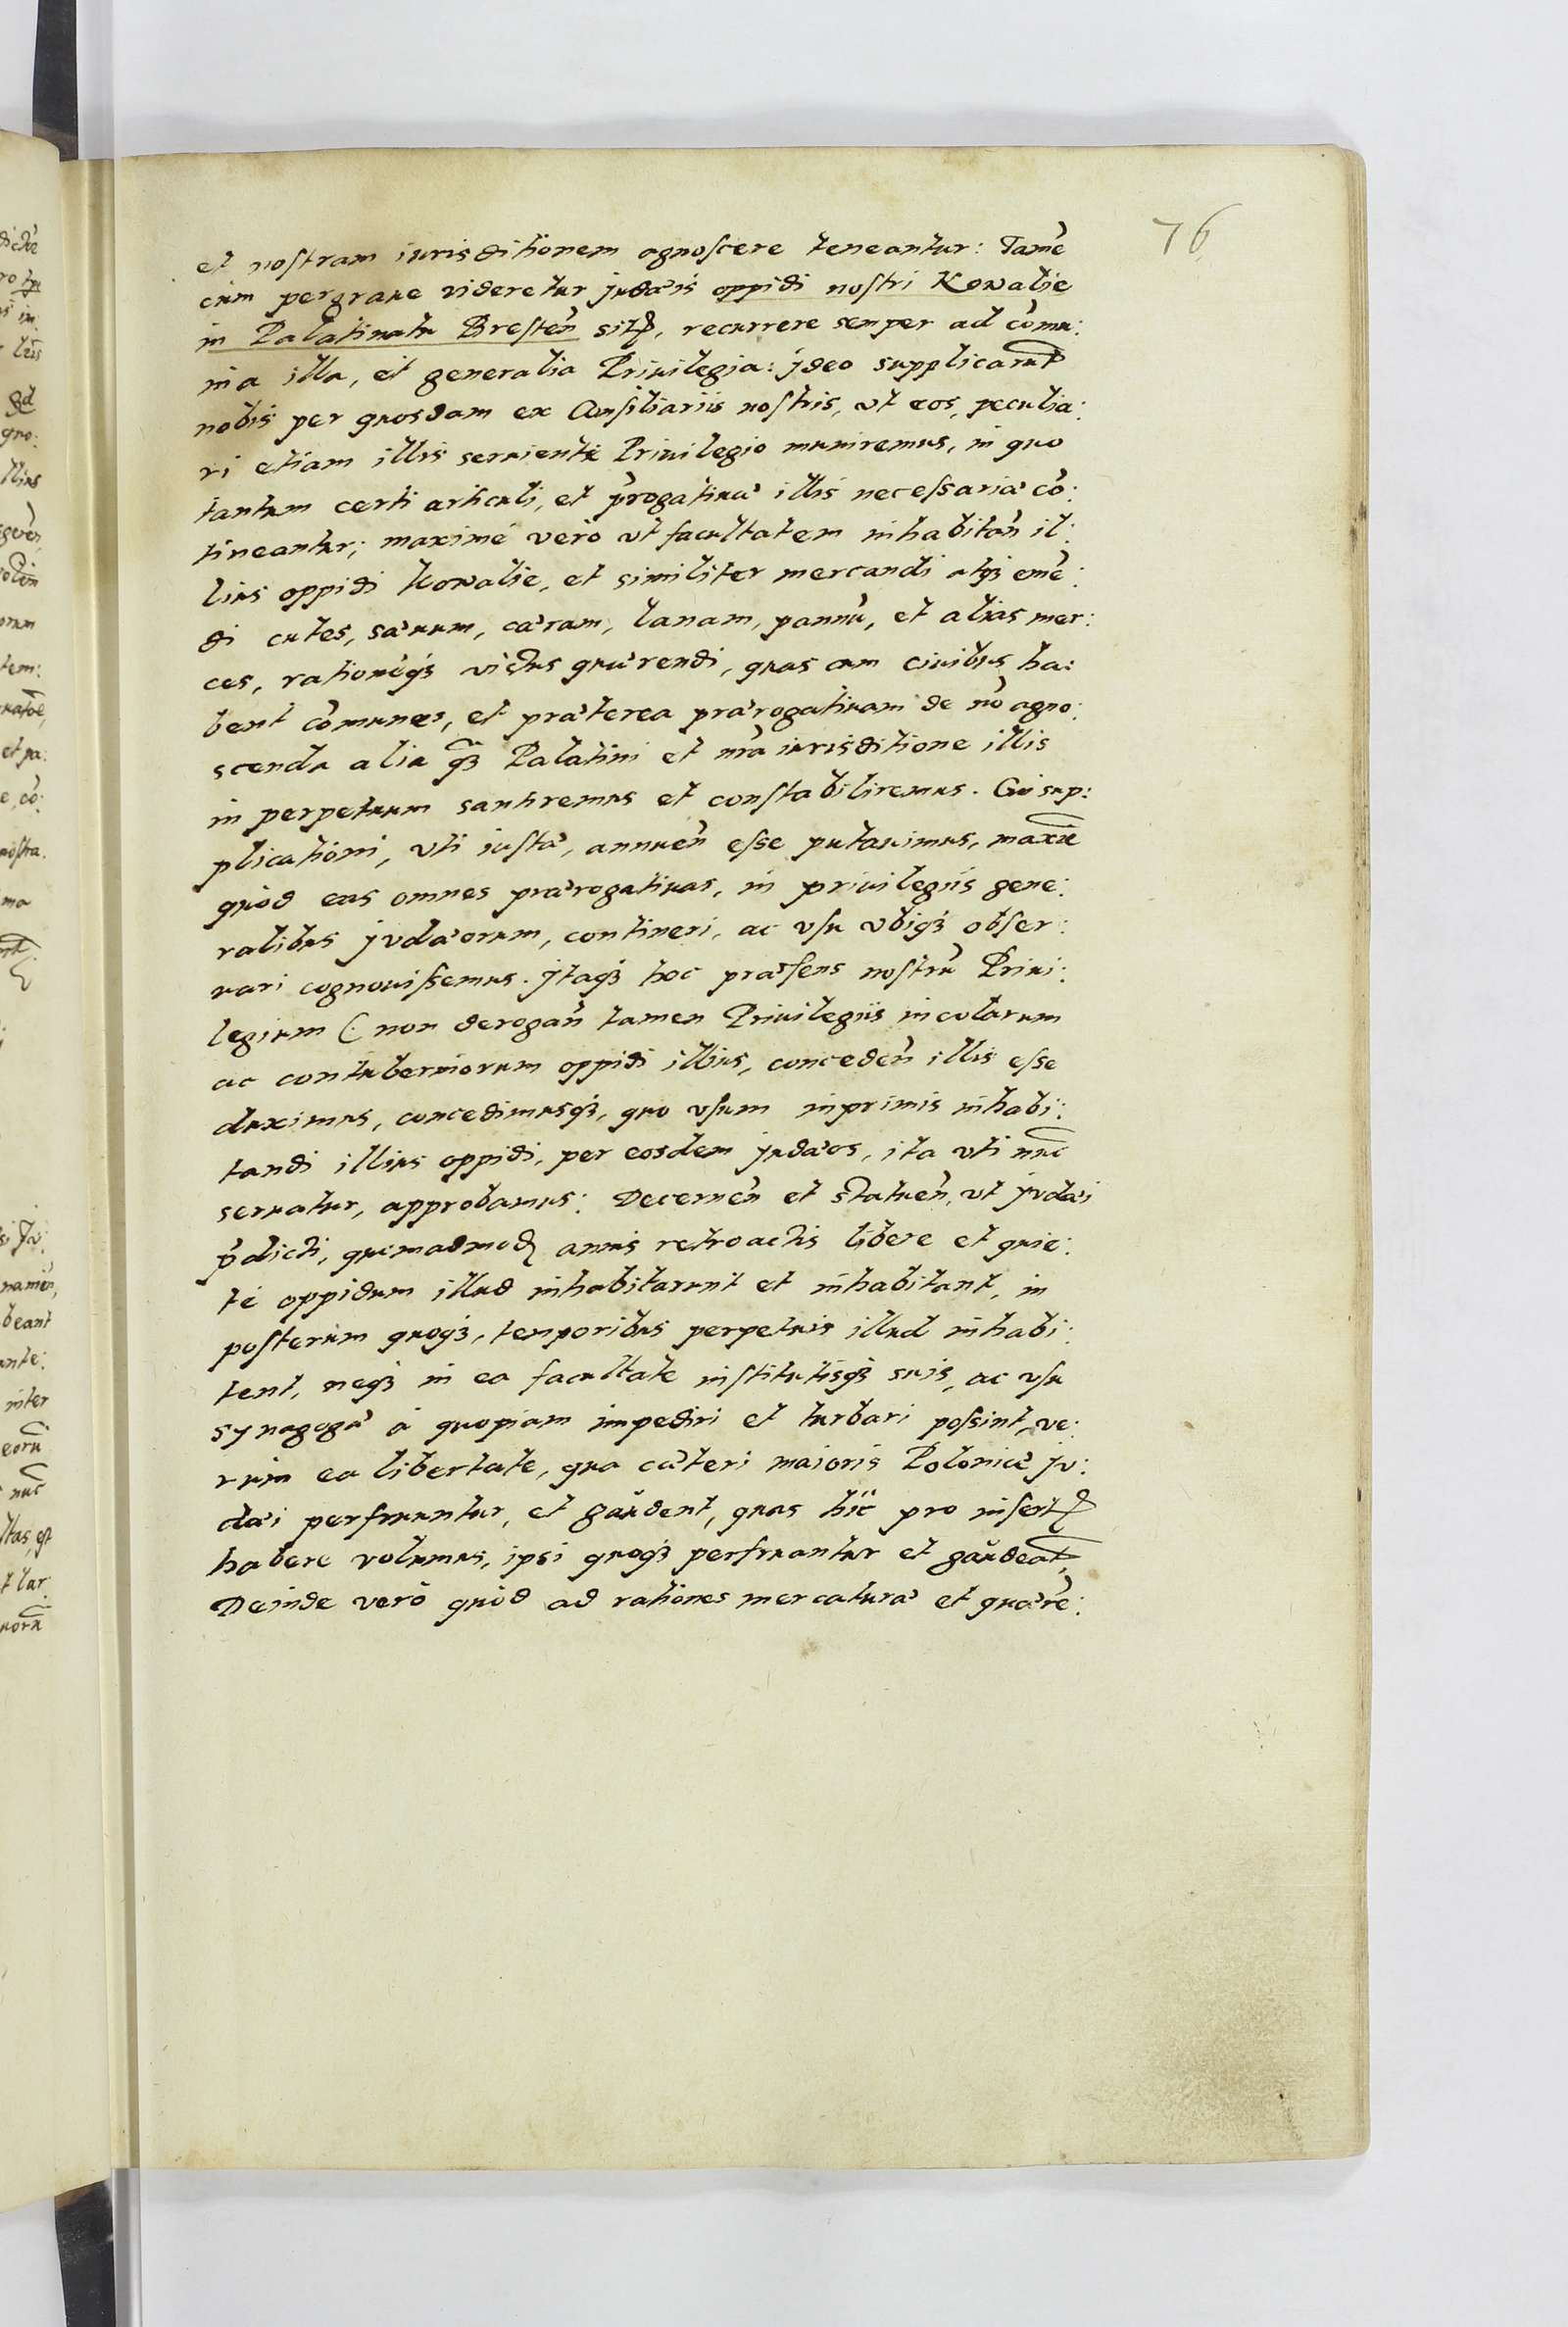 76
et nostram iurisditionem agnoscere teneantur: Tamē
cum pergraue videretur judæis oppidi nostri Kowalie
in Palatinatu Bresteñ sit, recurrere semper ad cōmu:
nia illa, et generalia Priuilegia: jdeo supplicarūt
nobis per quosdam ex Consiliariis nostris, vt eos, peculia:
ri etiam illis seruienti Priuilegio muniremus, in quo
tantum certi articuli, et p̄rogatiuæ illis necessariæ cō:
tineantur; maximè verò vt facultatem inhabitañ il:
lius oppidi Kowalie, et similiter mercandi atqȝ emē:
di cutes, sæuum, cæram, lanam, pannū, et alias mer:
ces, rationēqȝ victus quærendi, quas cum ciuibus ha:
bent cōmunes, et præterea prærogatiuam de nō agno:
scenda alia qȝ̄ Palatini et nr̄a iurisditione illis
in perpetuum sanciremus et constabiliremus. Cui sup:
plicationi, vti iustæ, annueñ esse putauimus, maxīe
quòd eas omnes prærogatiuas, in priuilegiis gene:
ralibus judæorum, contineri, ac vsu vbiqȝ obser:
uari cognouissemus. jtaqȝ hoc præsens nostrū Priui:
legium (: non derogañ tamen Priuilegiis incolarum
ac contuberniorum oppidi illius, concedeñ illis esse
duximus, concedimusqȝ, quo vsum inprimis inhabi:
tandi illius oppidi, per eosdem judæos, ita vti nūc
seruatur, approbamus: Decerneñ et statueñ, vt judæi
p̄dicti, quemadmod annis retroactis liberè et quie:
tè oppidum illud inhabitarunt et inhabitant, in
posterum quoqȝ, temporibus perpetuis illud inhabi:
tent, neqȝ in ea facultate institutisqȝ suis, ac vsu
synagogæ à quopiam impediri et turbari possint, ve:
rum ea libertate, qua cæteri maioris Poloniæ ju:
dæi perfruuntur, et gaudent, quas hic pro insert
habere volumus, ipsi quoqȝ perfruantur et gaudeāt,
Deinde verò quòd ad rationes mercaturæ et quærē: